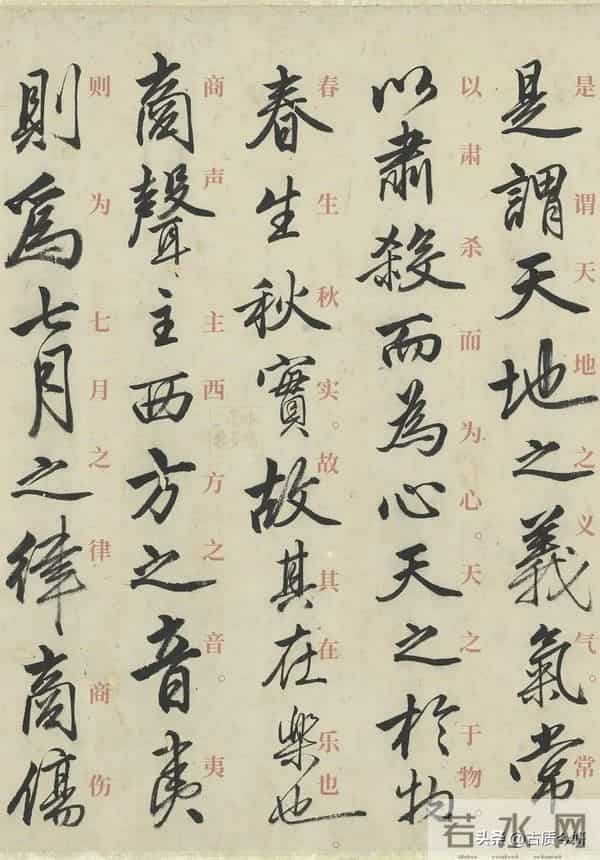 是謂天地之義氣常
是谓天地之义气。常
以肅殺而為心天之於物
以肃杀而为心。天之于物。
春生秋實故其在樂也
春生秋实。故其在乐也
商聲主西方之音夷
商声主西方之音。夷
則爲七月之律商傷
则为七月之律商伤
若水网
头条 @古质今妍